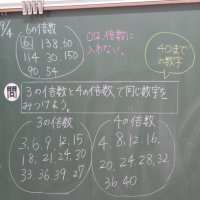 9/4
6の倍数
6, 138, 60
114 30, 150
90, 54
0は倍数に
入れない。
40まで
の数字
問 3の倍数と4の倍数で同じ数字を
みつけよう。
3の倍数
3, 6, 9, 12, 15
18, 21, 24, 30
33 36, 39, 27
4の倍数
4, 8, 12, 16,
20, 24, 28, 32
36, 40